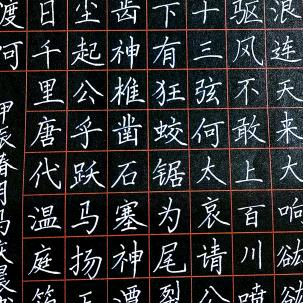 浪连天来大响谹谹
驱风不敢上百川喷
十三弦何太哀请公
下有狂蛟锯为尾裂
齿神椎凿石塞神潭
尘起公乎跃马扬玉
日千里唐代温庭筠
渡河
甲辰春月